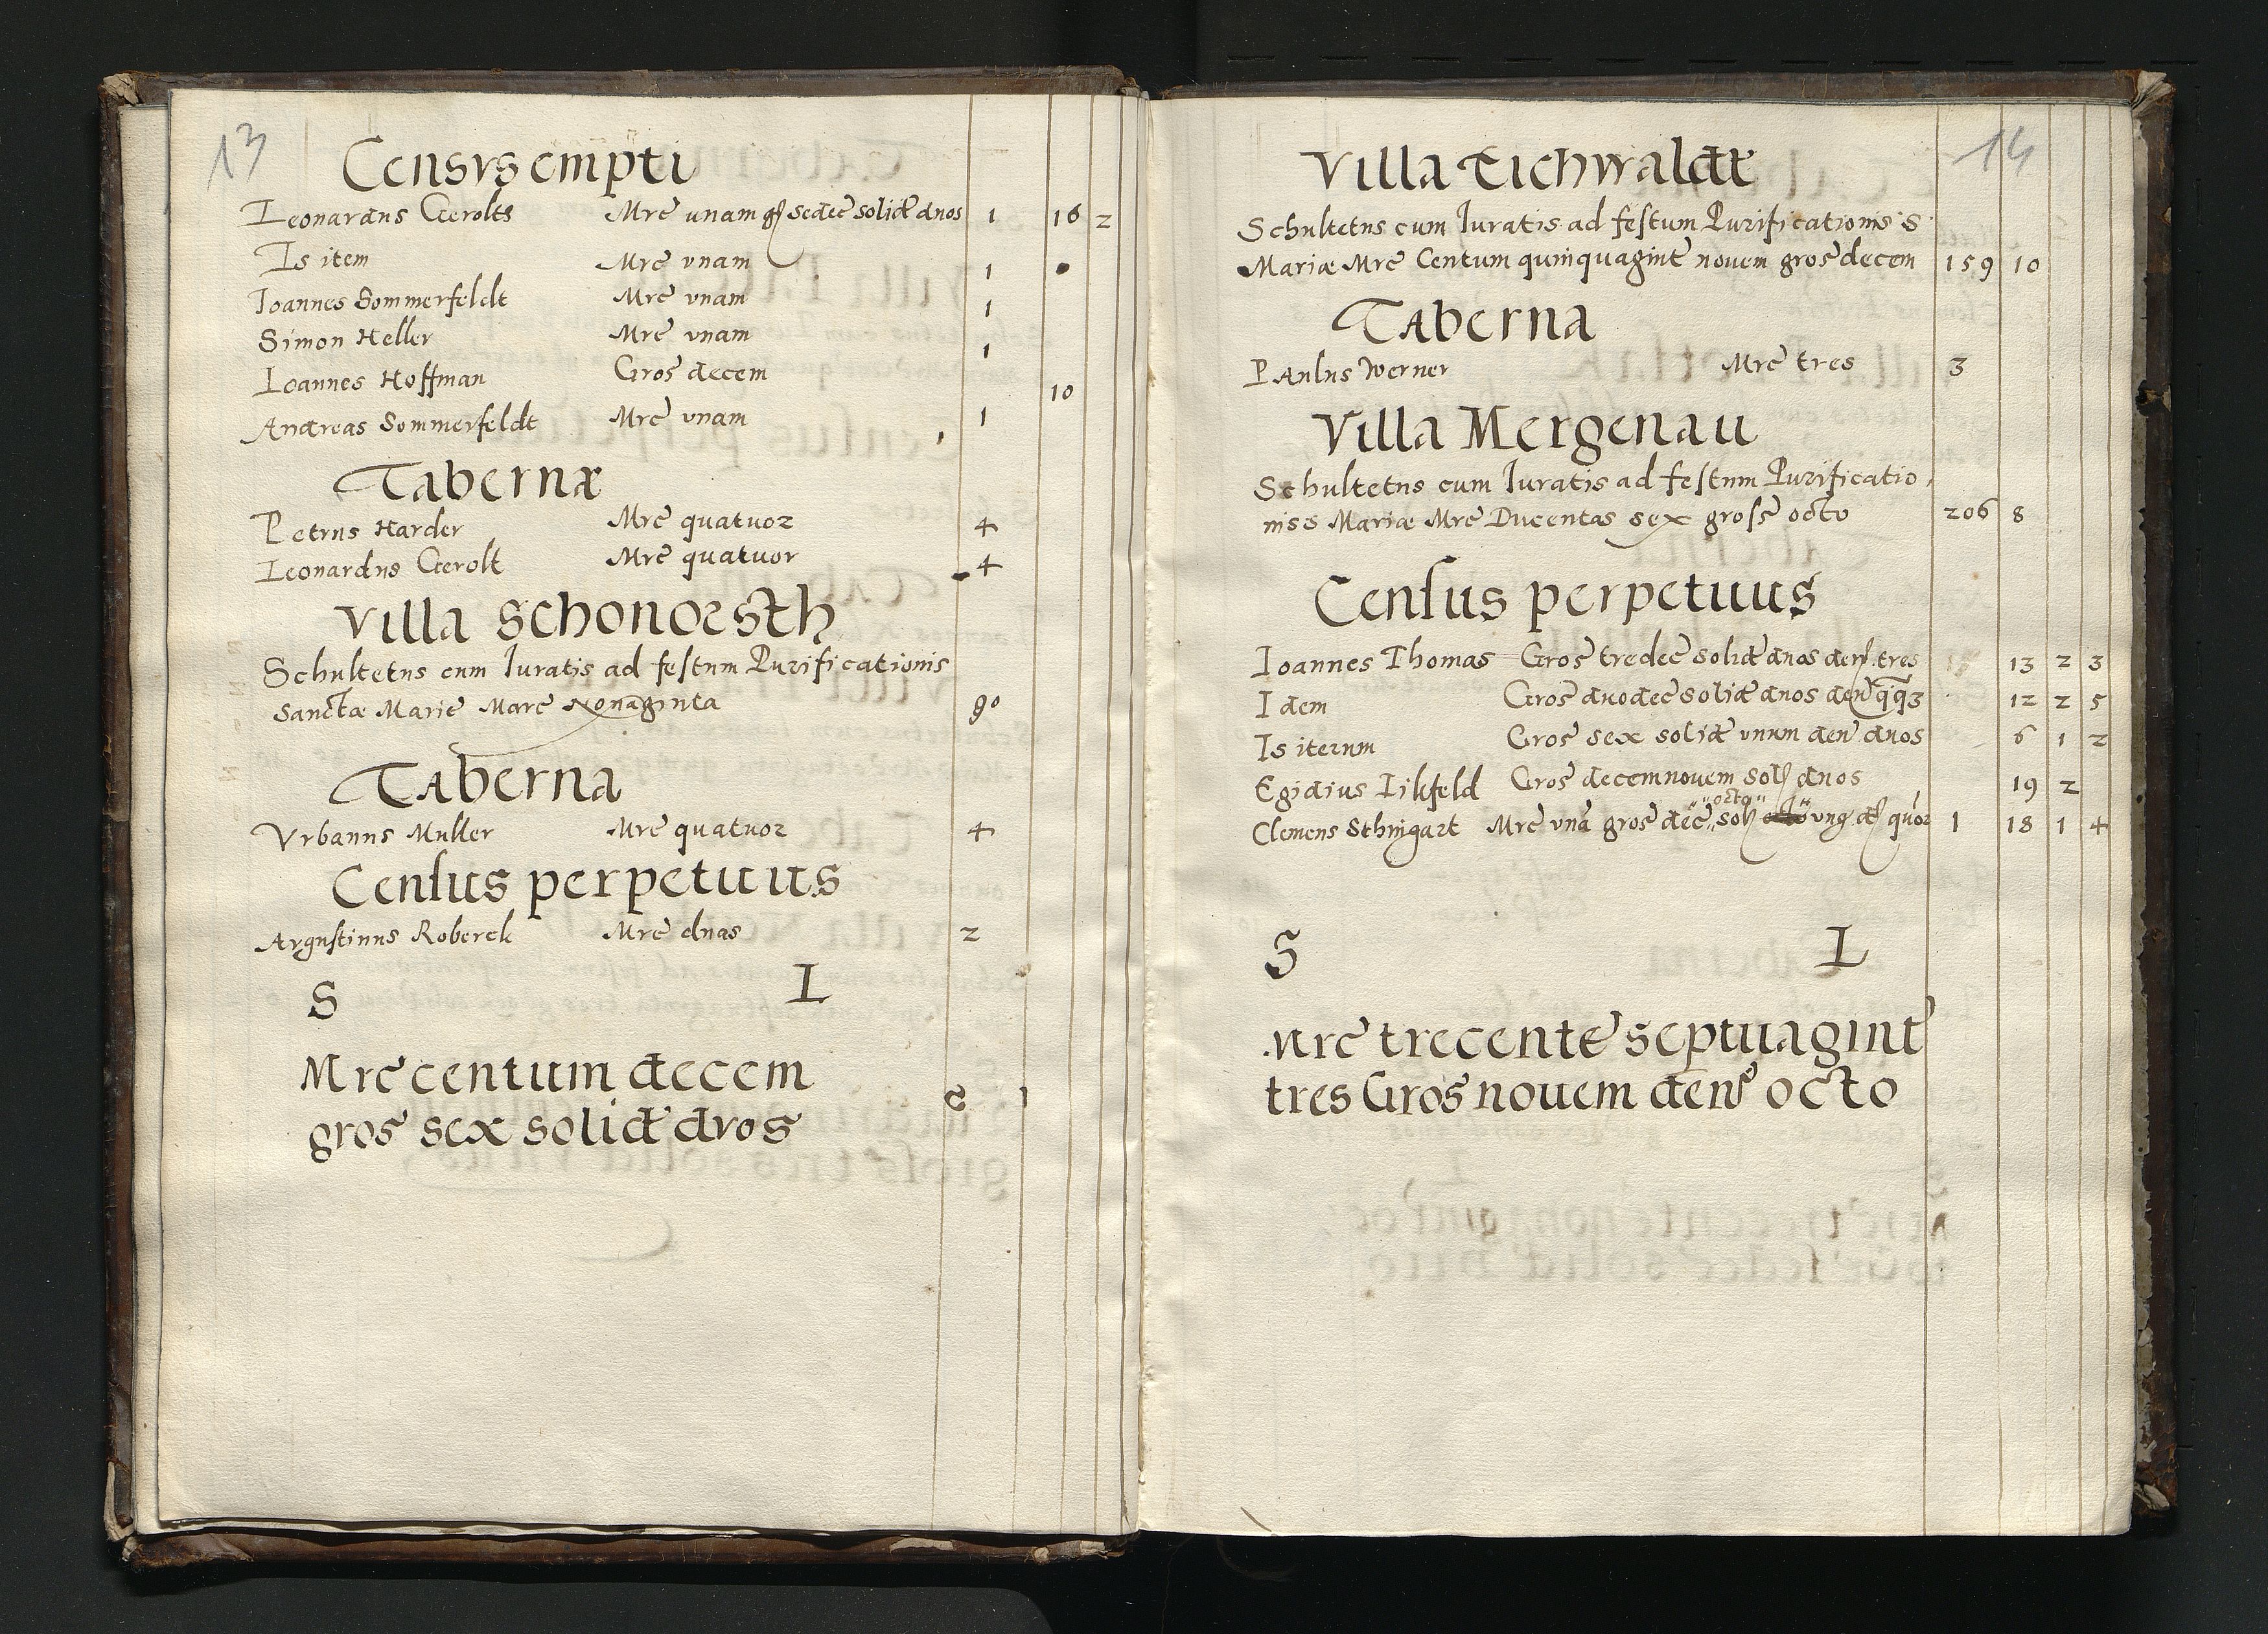 13
Censvs empti
Leonardus Gerolts Mrc unam gß sedec solid duos 1 16 2
Is item Mrc vnam 1
Ioannes Sommerfeldt Mrc vnam 1
Simon Heller Mrc vnam 1
Ioannes Hoffman Gros decem 10
Andreas Sommerfeldt Mrc vnam 1
Tabernæ
Petrus Harder Mrc quatuor 4
Leonardus Gerolt Mrc quatuor 4
Villa Schonorsth
Schultetus cum Iuratis ad festum Purificationis
Sanctæ Marie Marc Nonaginta 90
Taberna
Vrbanus Muller Mrc quatuor 4
Census perpetuus
Argustinus Roberck Mrc duas 2
S L
Mrc centum decem
gros sex solid dvos
14
Villa Eichwaldt
Schultetus cum Iuratis ad festum Purificationis S
Mariæ Mrc Centum quinquagint novem gros decem 159 10
Taberna
Paulus Werner Mrc tres 3
Villa Mergenau
Schultetus cum Iuratis ad festum Purificatio
nis S Mariæ Mrc Ducentas sex gross octo 206 8
Census perpetuus
Ioannes Thomas Gros tredec solid duos den tres 13 2 3
Idem Gros duodec solid duos den qqз 12 2 5
Is iterum Gros sex solid vnum den duos 6 1 2
Egidius Lilkfeld Gros decemnouem sol duos 19 2
octo
Clemens Sthingart Mrc vna gros dec sol vng d quor 1 18 1 4
S L
Mrc trecente septuagint
tres Gros nouem den octo